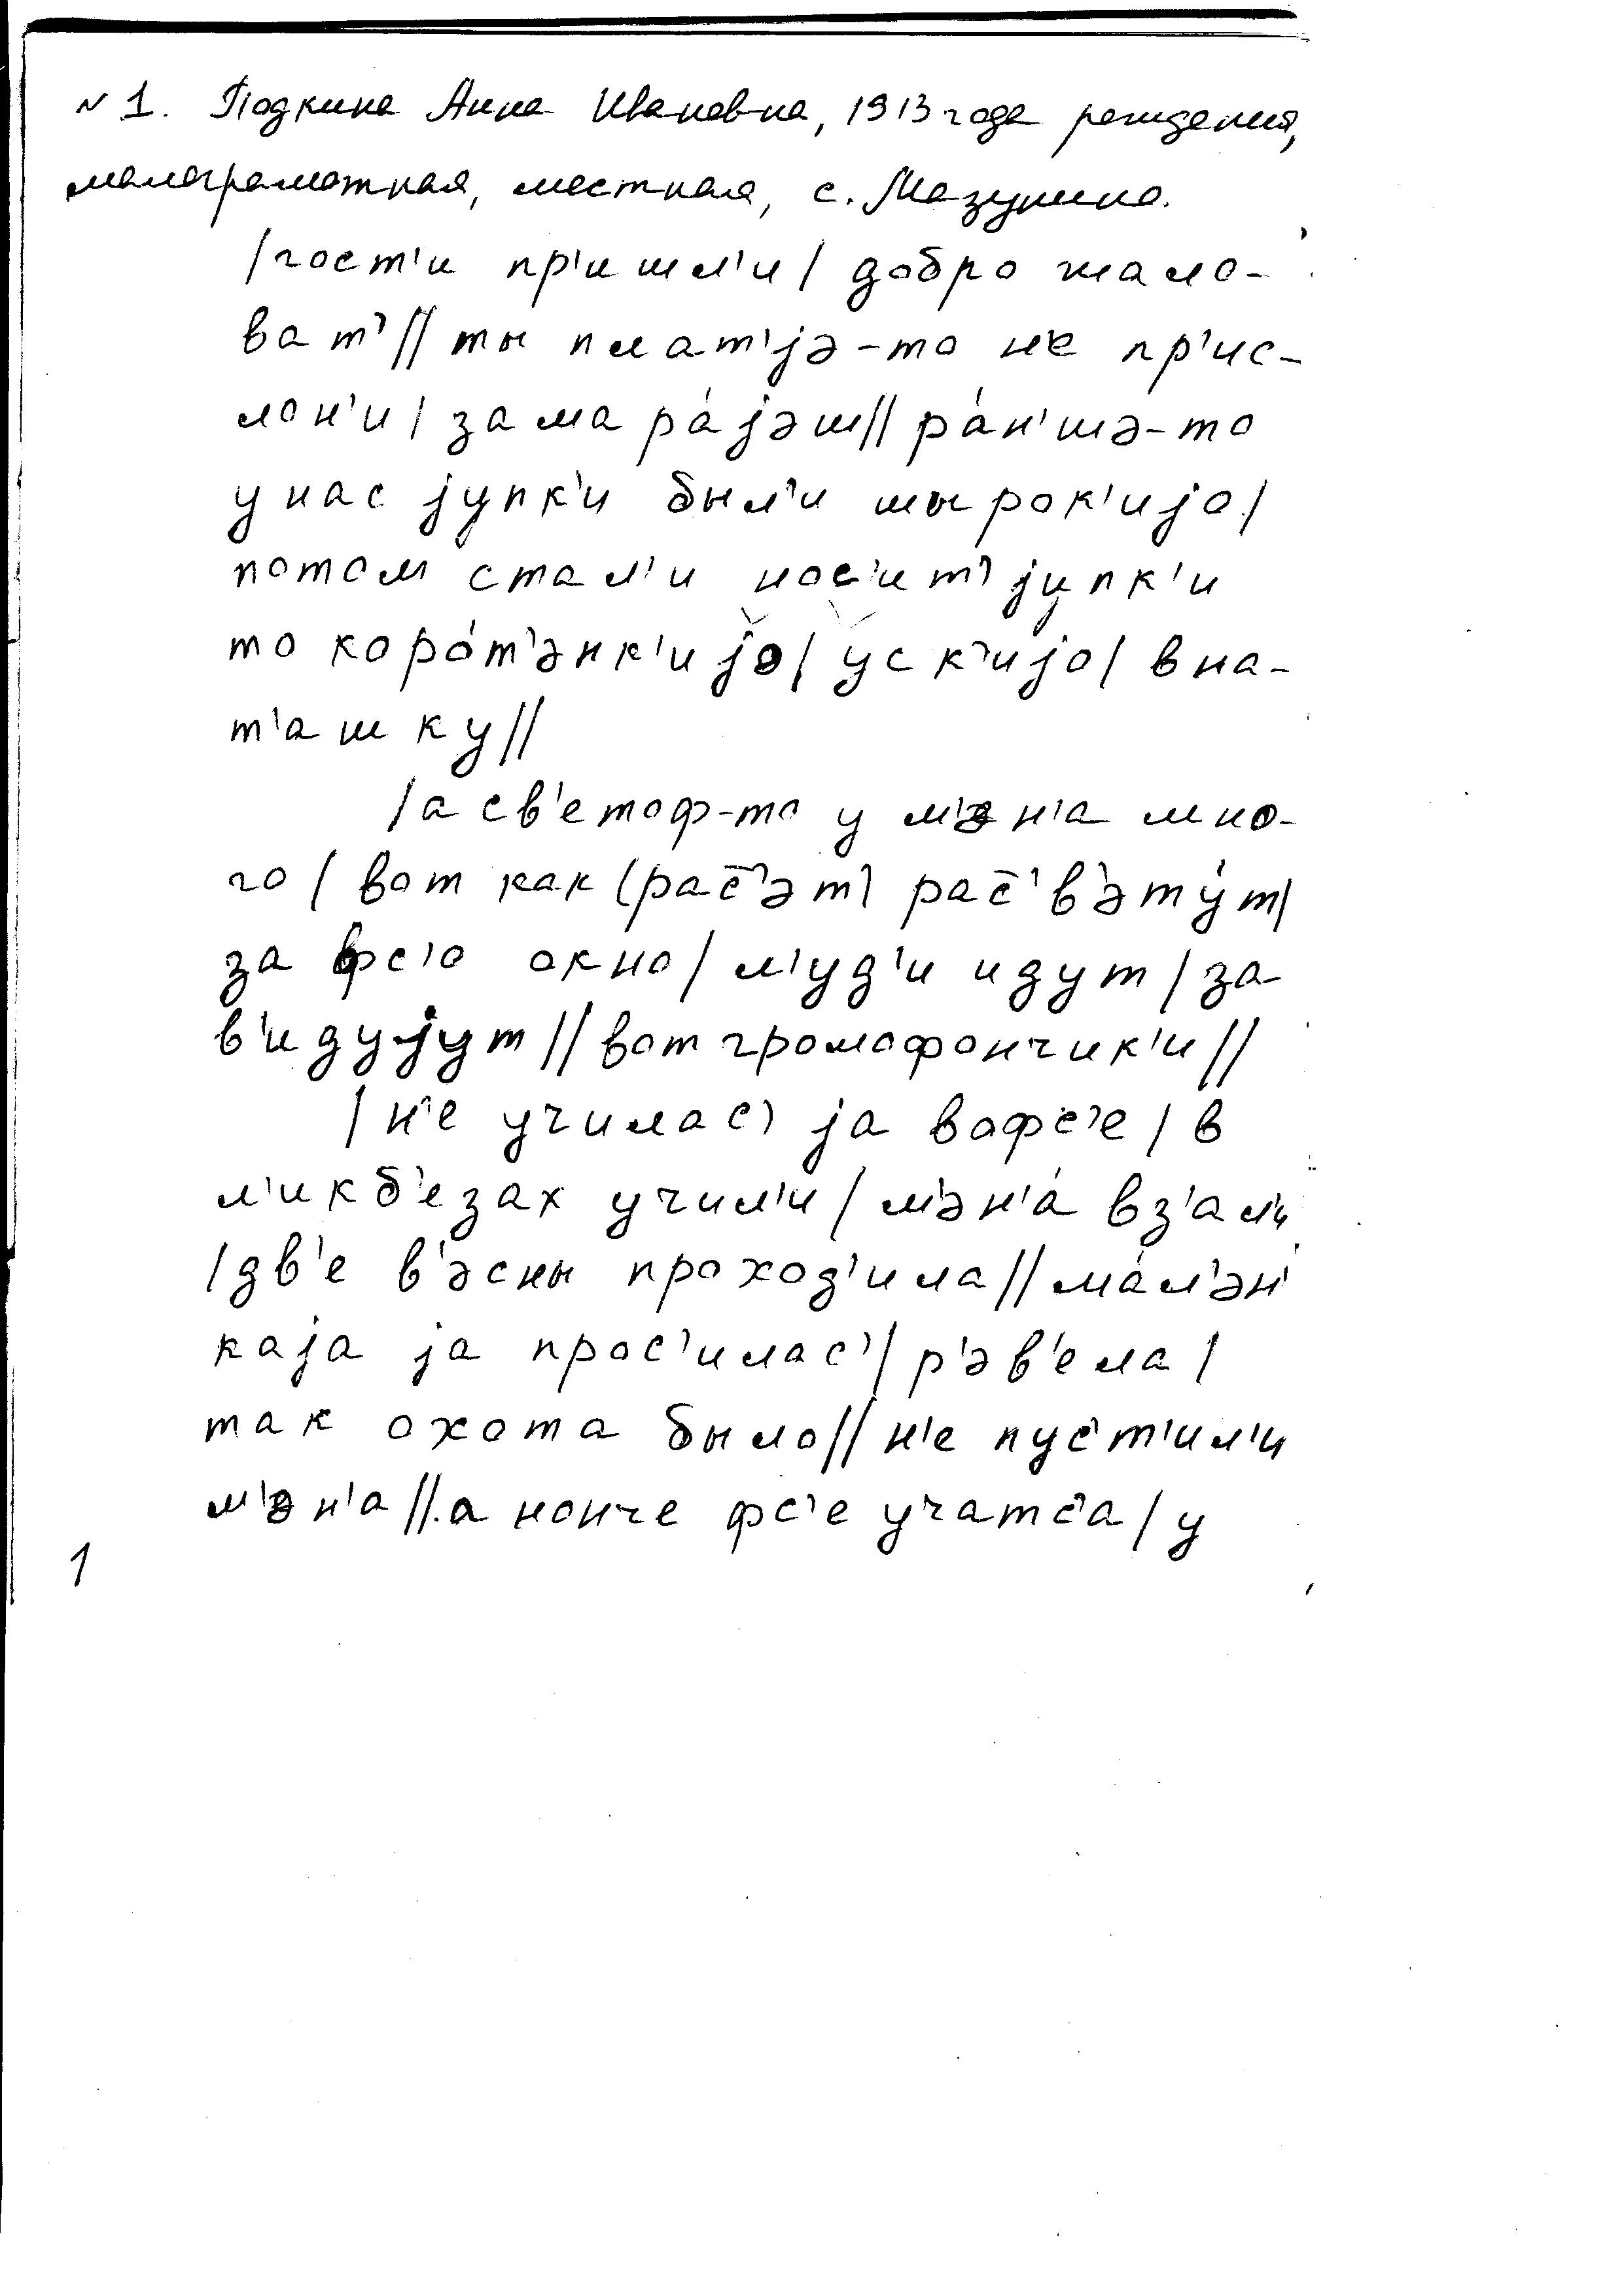 № 1. Подкина Анна Ивановна, 1913 года рождения,
малограмотная, местная, с. Мазунино.
/гост'и пр'ишл'и/ добро жало-
ват'// ты плат'jә-то н'е пр'ис-
лон'и/ замарáјәш// рáн'шә-то
у нас јупк'и был'и шырок'ијо/
потом стал'и нос'ит' јупк'и
то корóт'әнк'ијо/ уск'ијо/ в на-
т'ашку//
/а св'етоф-то у м'ән'а мно-
го/ вот как (рас̄'әт) рас̄'в'әтýт/
за фс'о окно/ л'уд'и идут/ за-
в'идујут// вот громофончик'и//
/н'е училас' ја вофс'е/ в
л'икб'езах учил'и/ м'ән'á вз'ал'и
/дв'е в'әсны проход'ила// мáл'ән'
каја ја прос'илас'/ р'әв'ела/
так охота было// н'е пус'т'ил'и
м'ән'а// а нонче фс'е учатс'а/ у
1